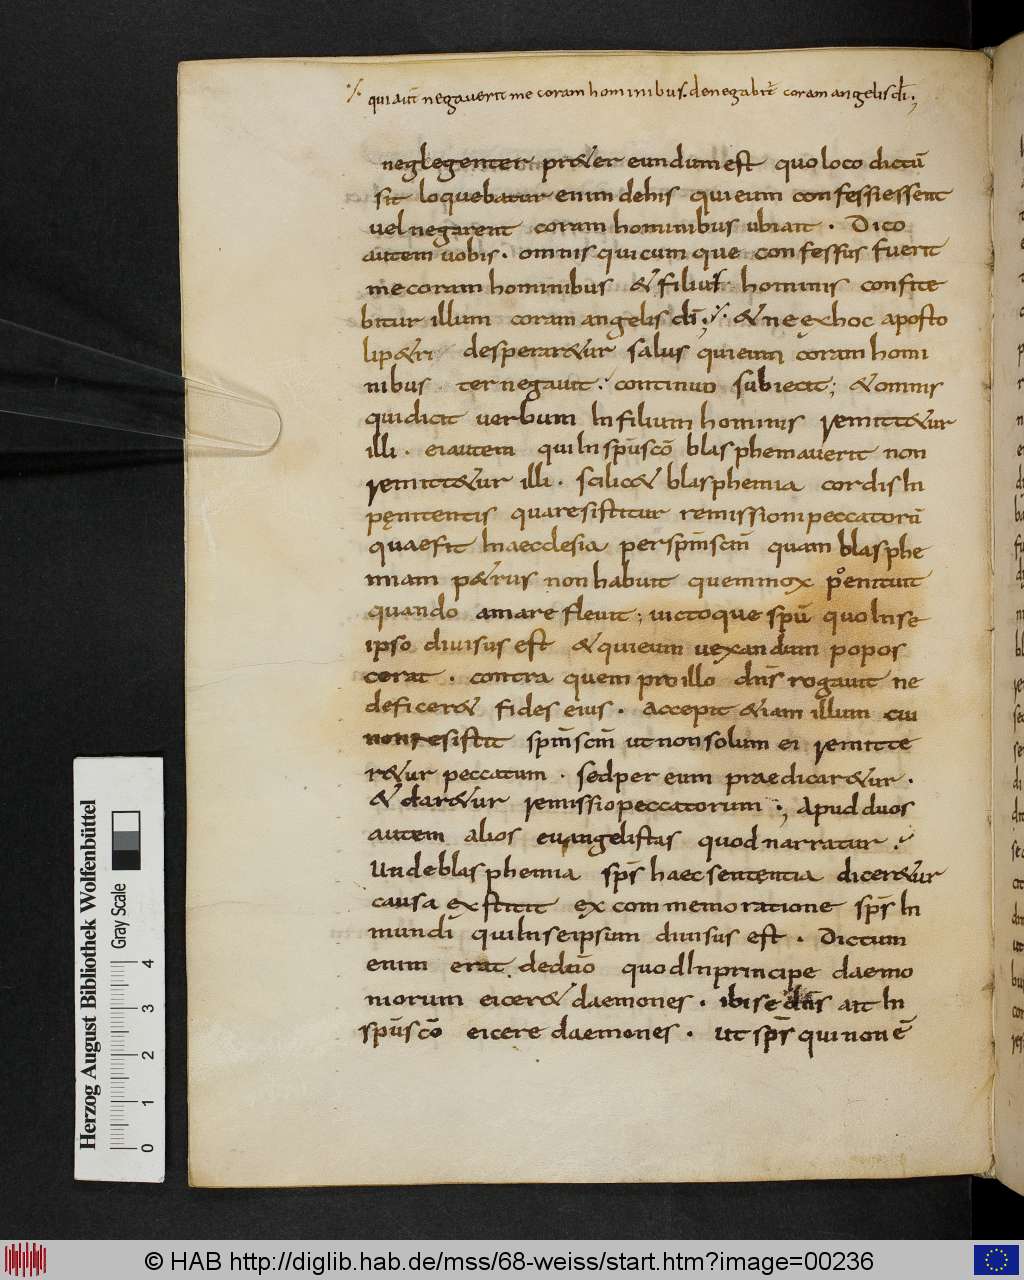 qui aut̄ negaverit me coram hominibus. denegabit̄ coram angelis dī;
neglegenter pręter eundum est quo loco dictū
sit loquebatur enim de his qui eum confessi essent
vel negarent coram hominibus ubi ait . Dico
autem vobis . omnis quicumque confessus fuerit
me coram hominibus & filius hominis confite
bitur illum coram angelis dī; & ne ex hoc aposto
li p&ri desperar&ur salus qui eum coram homi
nibus ter negavit . continuo subiecit; & omnis
qui dicit verbum In filium hominis remitt&ur
illi . ei autem qui In sp̄m scō blasphemaverit non
remitt&ur illi . scilic& blasphemia cordis In
pęnitentis qua resistitur remissioni peccatorū
quae fit In aecclesia per sp̄m scm̄ quam blasphe
miam p&rus non habuit quem mox poenituit
quando amare flevit; victoque spū quo In se
ipso divisus est & qui eum vexandum popos
cerat . contra quem pro illo dn̄s rogavit ne
deficer& fides eius . accepit &iam illum cui
non resistit sp̄m scm̄ ut non solum ei remitte
r&ur peccatum . sed per eum praedicar&ur .
& dar&ur remissio peccatorum ; apud duos
autem alios euangelistas quod narratur .
Unde blasphemia sp̄s haec sententia dicer&ur
causa exstitit ex commemoratione sp̄s In
mundi qui In se ipsum divisus est . Dictum
enim erat de dn̄o quod In principe daemo
niorum eicer& daemones . ibi se dn̄s ait In
sp̄u scō eicere daemones . ut sp̄s qui non ē
Herzog August Bibliothek Wolfenbüttel
Gray Scale
0 1 2 3 4
© HAB http://diglib.hab.de/mss/68-weiss/start.htm?image=00236